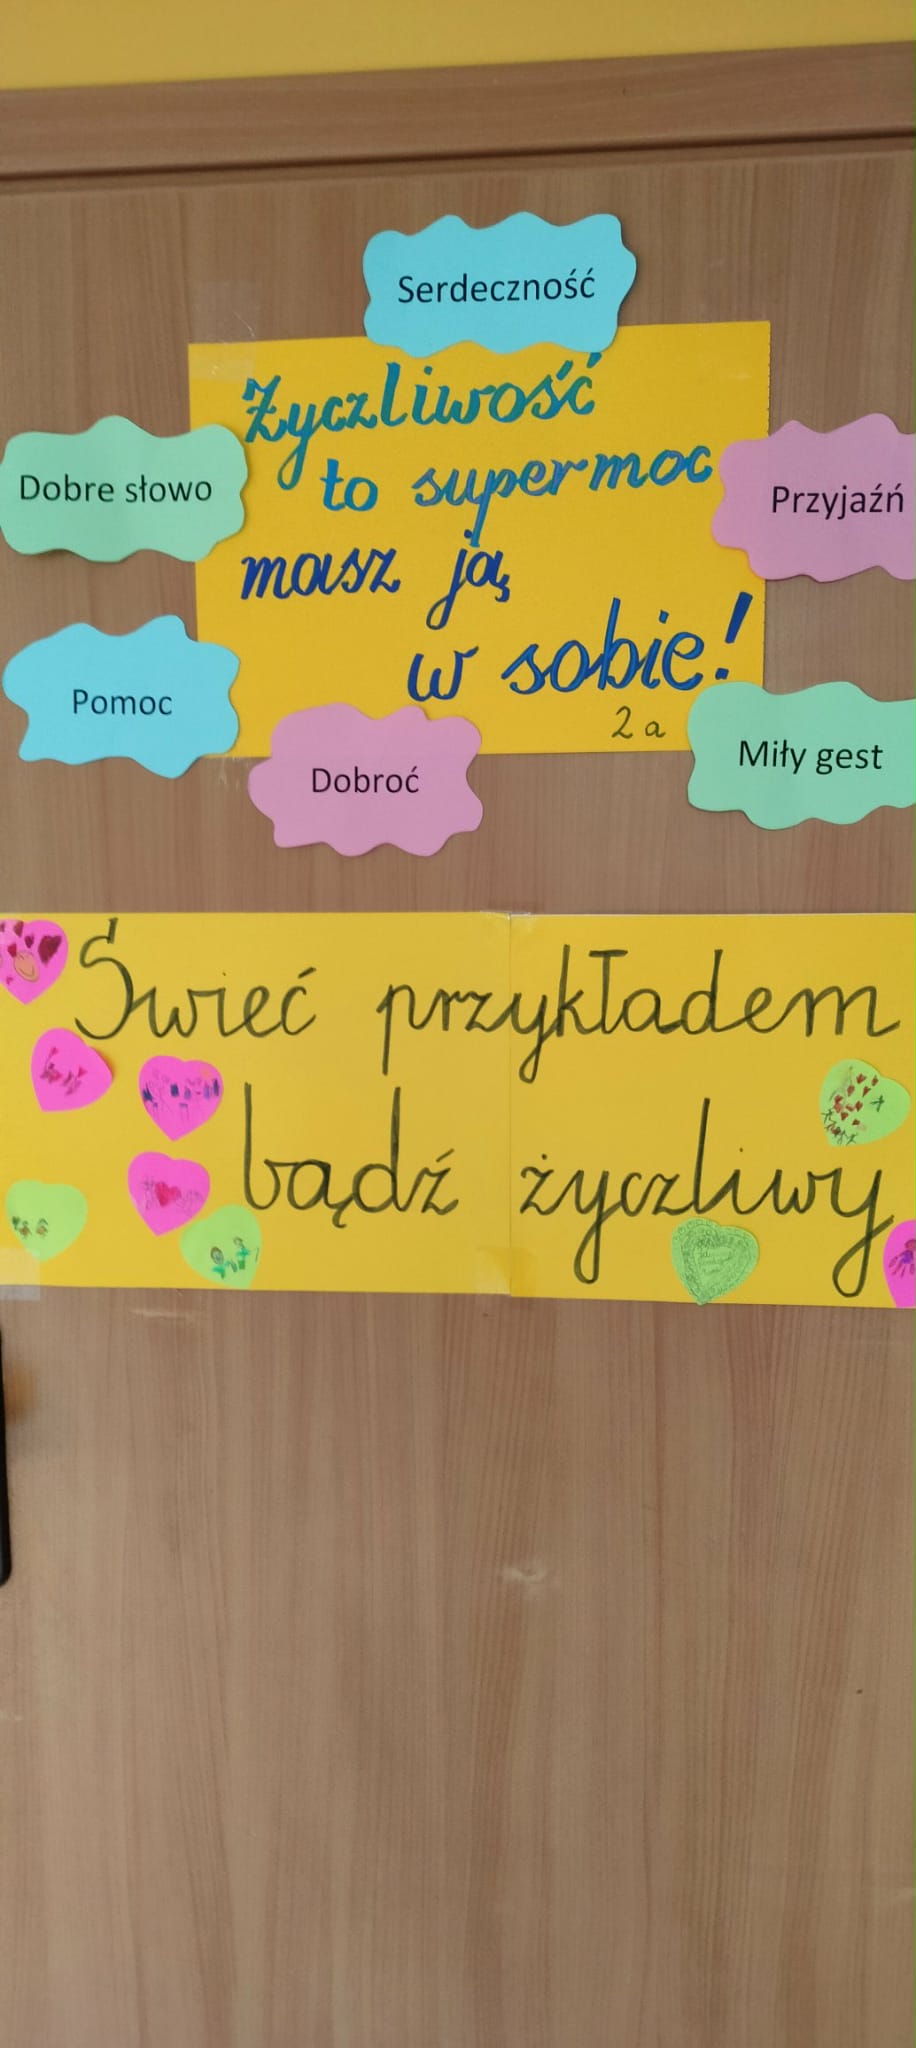 Serdeczność
Życzliwość
to supermoc
masz ją
w sobie!
2a
Dobre słowo
Przyjaźń
Pomoc
Dobroć
Miły gest
Świeć przykładem
bądź życzliwy